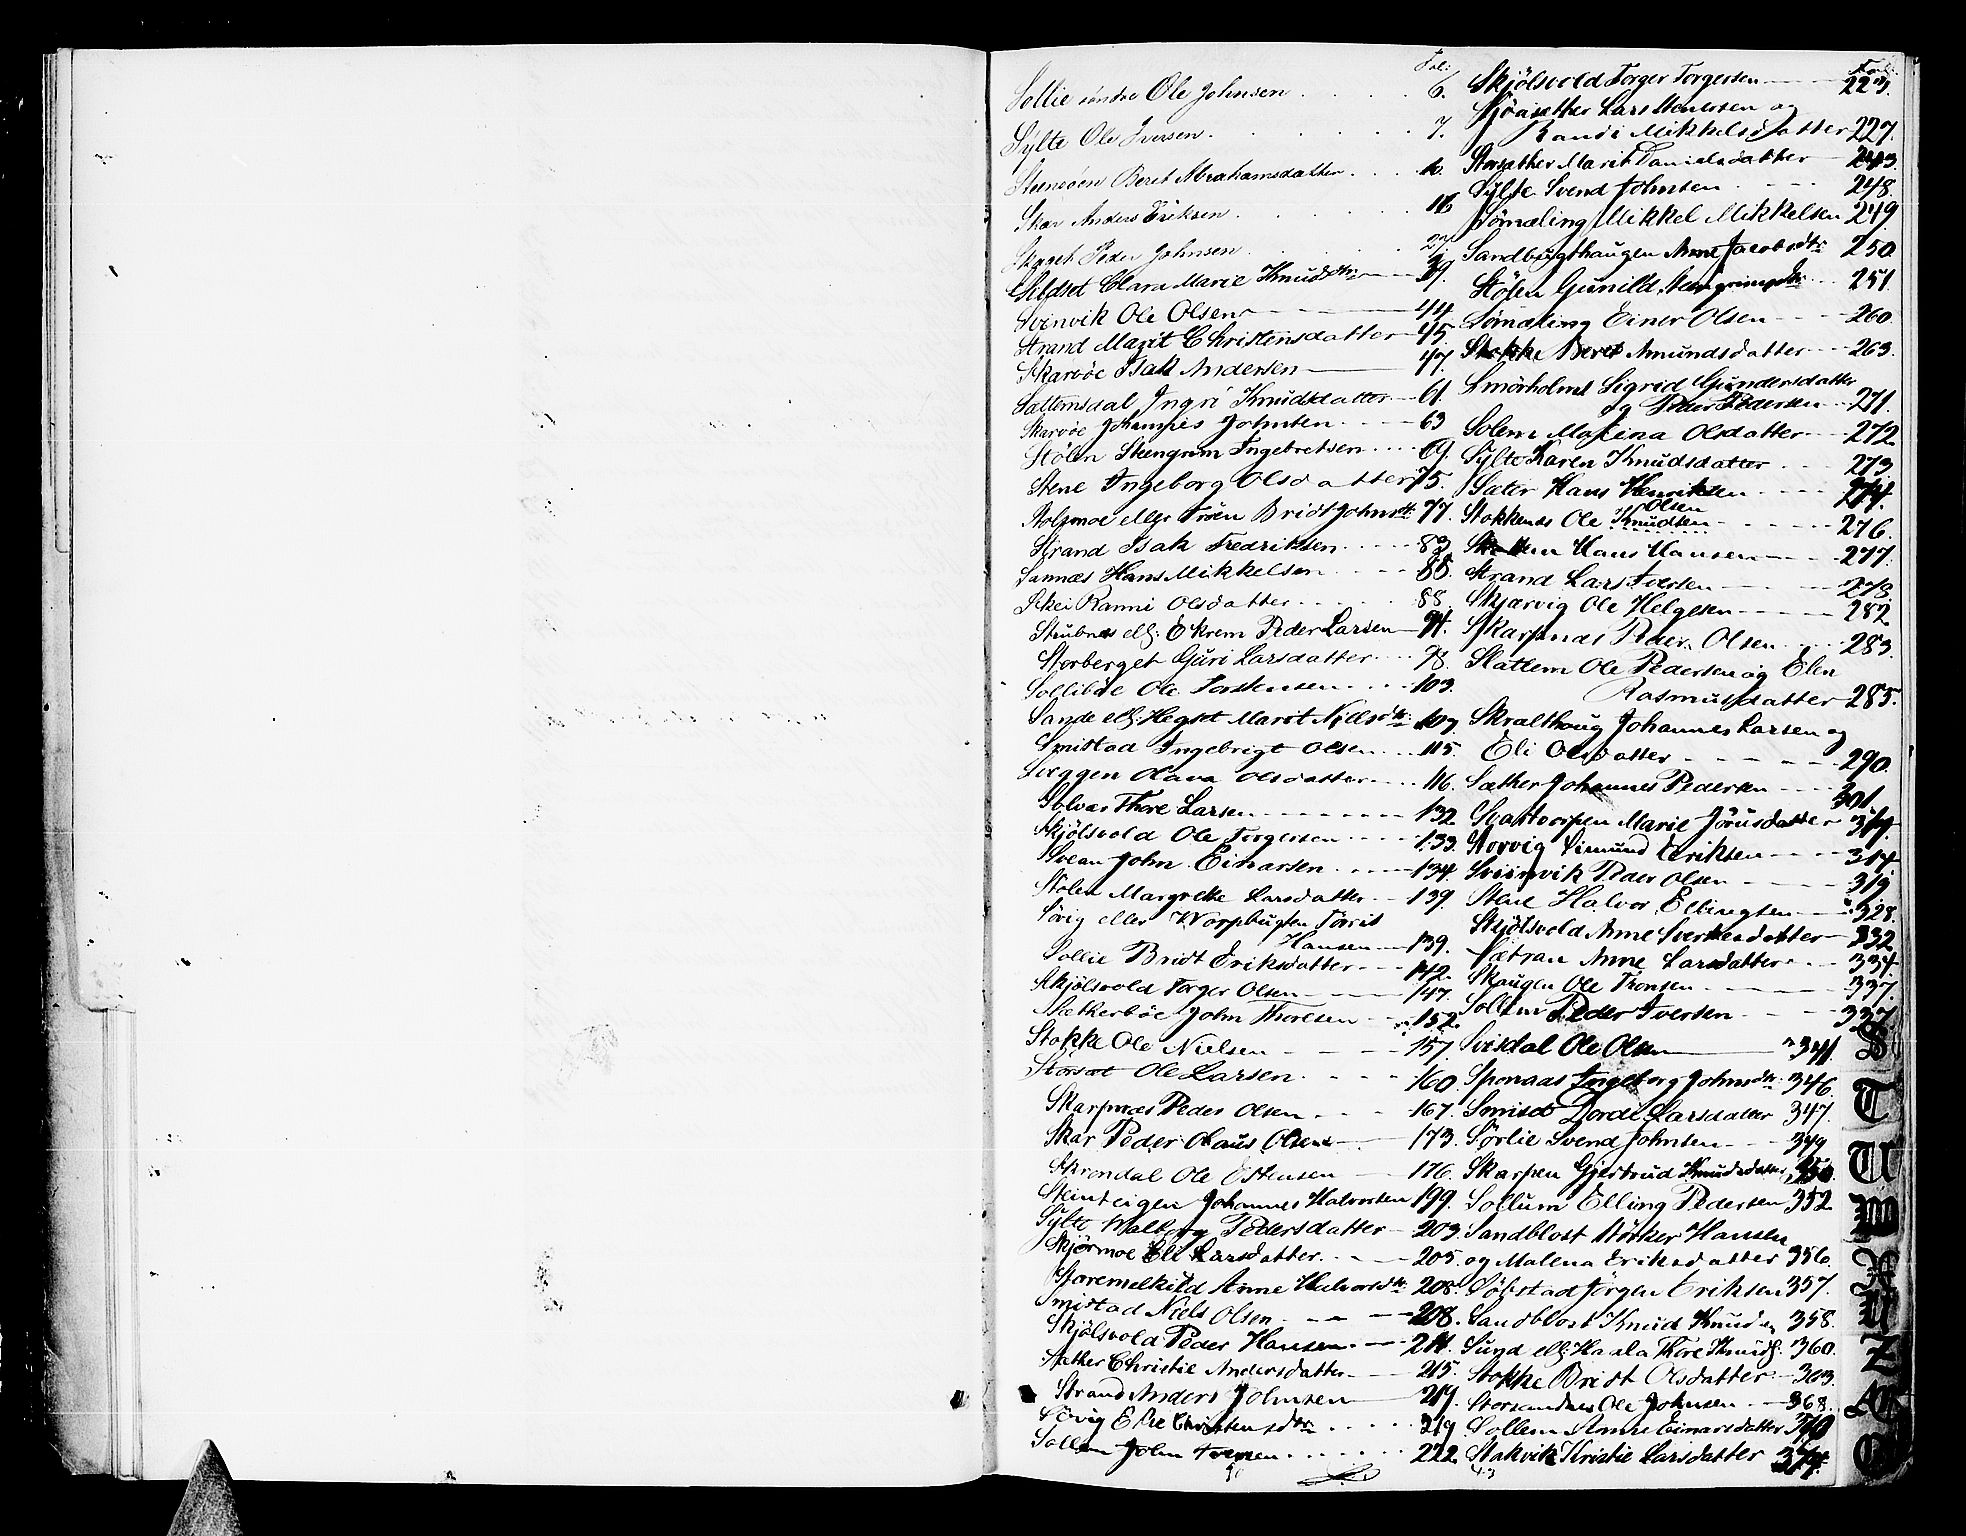 Fol:
Sollie søndre Ole Johnsen . . . . 6.
Sylte Ole Iversen . . . . . 7.
Steensøen Beret Abrahamsdatter . . .
Skar Anders Eriksen . . . . . 16
Peder Johnsen . . . . 27.
Sildset Clara Marie Knudsdtr 39.
Svinvik Ole Olsen 44
Strand Marit Christensdatter 45.
Skarvöe Isak Andersen 47.
Sattemsdal Ingri Knudsdatter 61.
Skarvöe Johannes Johnsen 63
Stölen Steengrim Ingebretsen 69.
Stene Ingeborg Olsdatter 75.
Stolpmoe eller Trøen Bridt Johnsdtr 77.
Strand Isak Fredriksen 83.
Sannæs Hans Mikkelsen 85.
Skei Ranni Olsdatter 88.
Stubnæs ell: Ekrem Peder Larsen 91.
Storberget Guri Larsdatter 98.
Solliböe Ole Torstensen 103.
Sande ell: Hegset Marit Nillsdtr 107
Smistad Ingebrigt Olsen 115.
Sveggen Olava Olsdatter 116.
Solvær Thore Larsen 132
Skjölsvold Ole Torgersen 133.
Svean John Einarsen 134.
Stölen Margrethe Larsdatter 139.
Sövig eller Worpbugten Torris
Hansen 139.
Sollie Bridt Eriksdatter 142.
Skjölsvold Torger Olsen 147.
Sætherböe John Thoresen 152.
Stokke Ole Nielsen 157.
Storsæt Ole Larsen 160.
Skarpnæs Peder Olsen 167.
Skar Peder Olaus Olsen 173.
Skrendal Ole Estensen 176.
Steinteigen Johannes Halvorsen 199.
Sylte Walborg Pedersdatter 203.
Skjörmoe Eli Larsdatter 205.
Anne Halvorsdtr 208.
Smistad Niels Olsen 208.
Skjölsvold Peder Hansen 211.
Sæther Christie Andersdatter 215.
Strand Anders Johnsen 217.
Sövig Else Christensdtr 219.
Sollem John Iversen 222.
Fol:
Skjölsvold Torger Torgersen 223.
Lars Stenersen og
Randi Mikkelsdatter 227.
Storsæther Marit Danielsdatter 243.
Sylte Svend Johnsen 248.
Sömæling Mikkel Mikkelsen 249.
Sandbugthaugen Anne Jacobsdtr 250.
Stölen Gunild Steengrimsdtr 251.
Sömæling Einer Olsen 260.
Stokke Beret Amundsdatter 263.
Smörholmet Sigrid Gundersdatter
og Peder Pedersen 271.
Solem Malena Olsdatter 272
Sylte Karen Knudsdatter 273
Sæter Hans Henriksen 274.
Olsen
Stokkenes Ole Knudsen 276.
Hans Hansen 277.
Strand Lars Iversen 278.
Skjærvig Ole Helgesen 282
Skarpnæs Peder Olsen 283.
Slattem Ole Pedersen og Elen
Rasmusdatter 285.
Skralthaug Johannes Larsen og
Eli Olsdatter 290.
Sæther Johannes Pedersen 301.
Svartvorpen Marie Jörnsdatter
Storvig Simund Eriksen 314.
Svinvik Peder Olsen 319.
Stene Halvor Ellingsen 328.
Skjölsvold Anne Sverkesdatter 332
Sætran Anne Larsdatter 334.
Skaugen Ole Tronsen 337.
Sollem Peder Iversen 337.
Svisdal Ole Olsen 341.
Sponaas Ingeborg Johnsdtr 346.
Smiset Dordi Larsdatter 347.
Sörlie Svend Johnsen 349
Skarpen Gjertrud Knudsdatter 350.
Sollum Elling Pedersen 352
Sandblost Störker Hansen
og Malena Eriksdatter 356.
Söbstad Jörgen Eriksen 357.
Sandblost Knud Knudsen 358.
Sund ell: Haala Thore Knuds. 360.
Stokke Bridt Olsdatter 363.
Storsandnes Ole Johnsen 368.
Sollem Anne Einarsdatter 370
Stakvik Kristie Larsdatter 374.
S
T
U
W
X
Y
Z
Æ
Ø